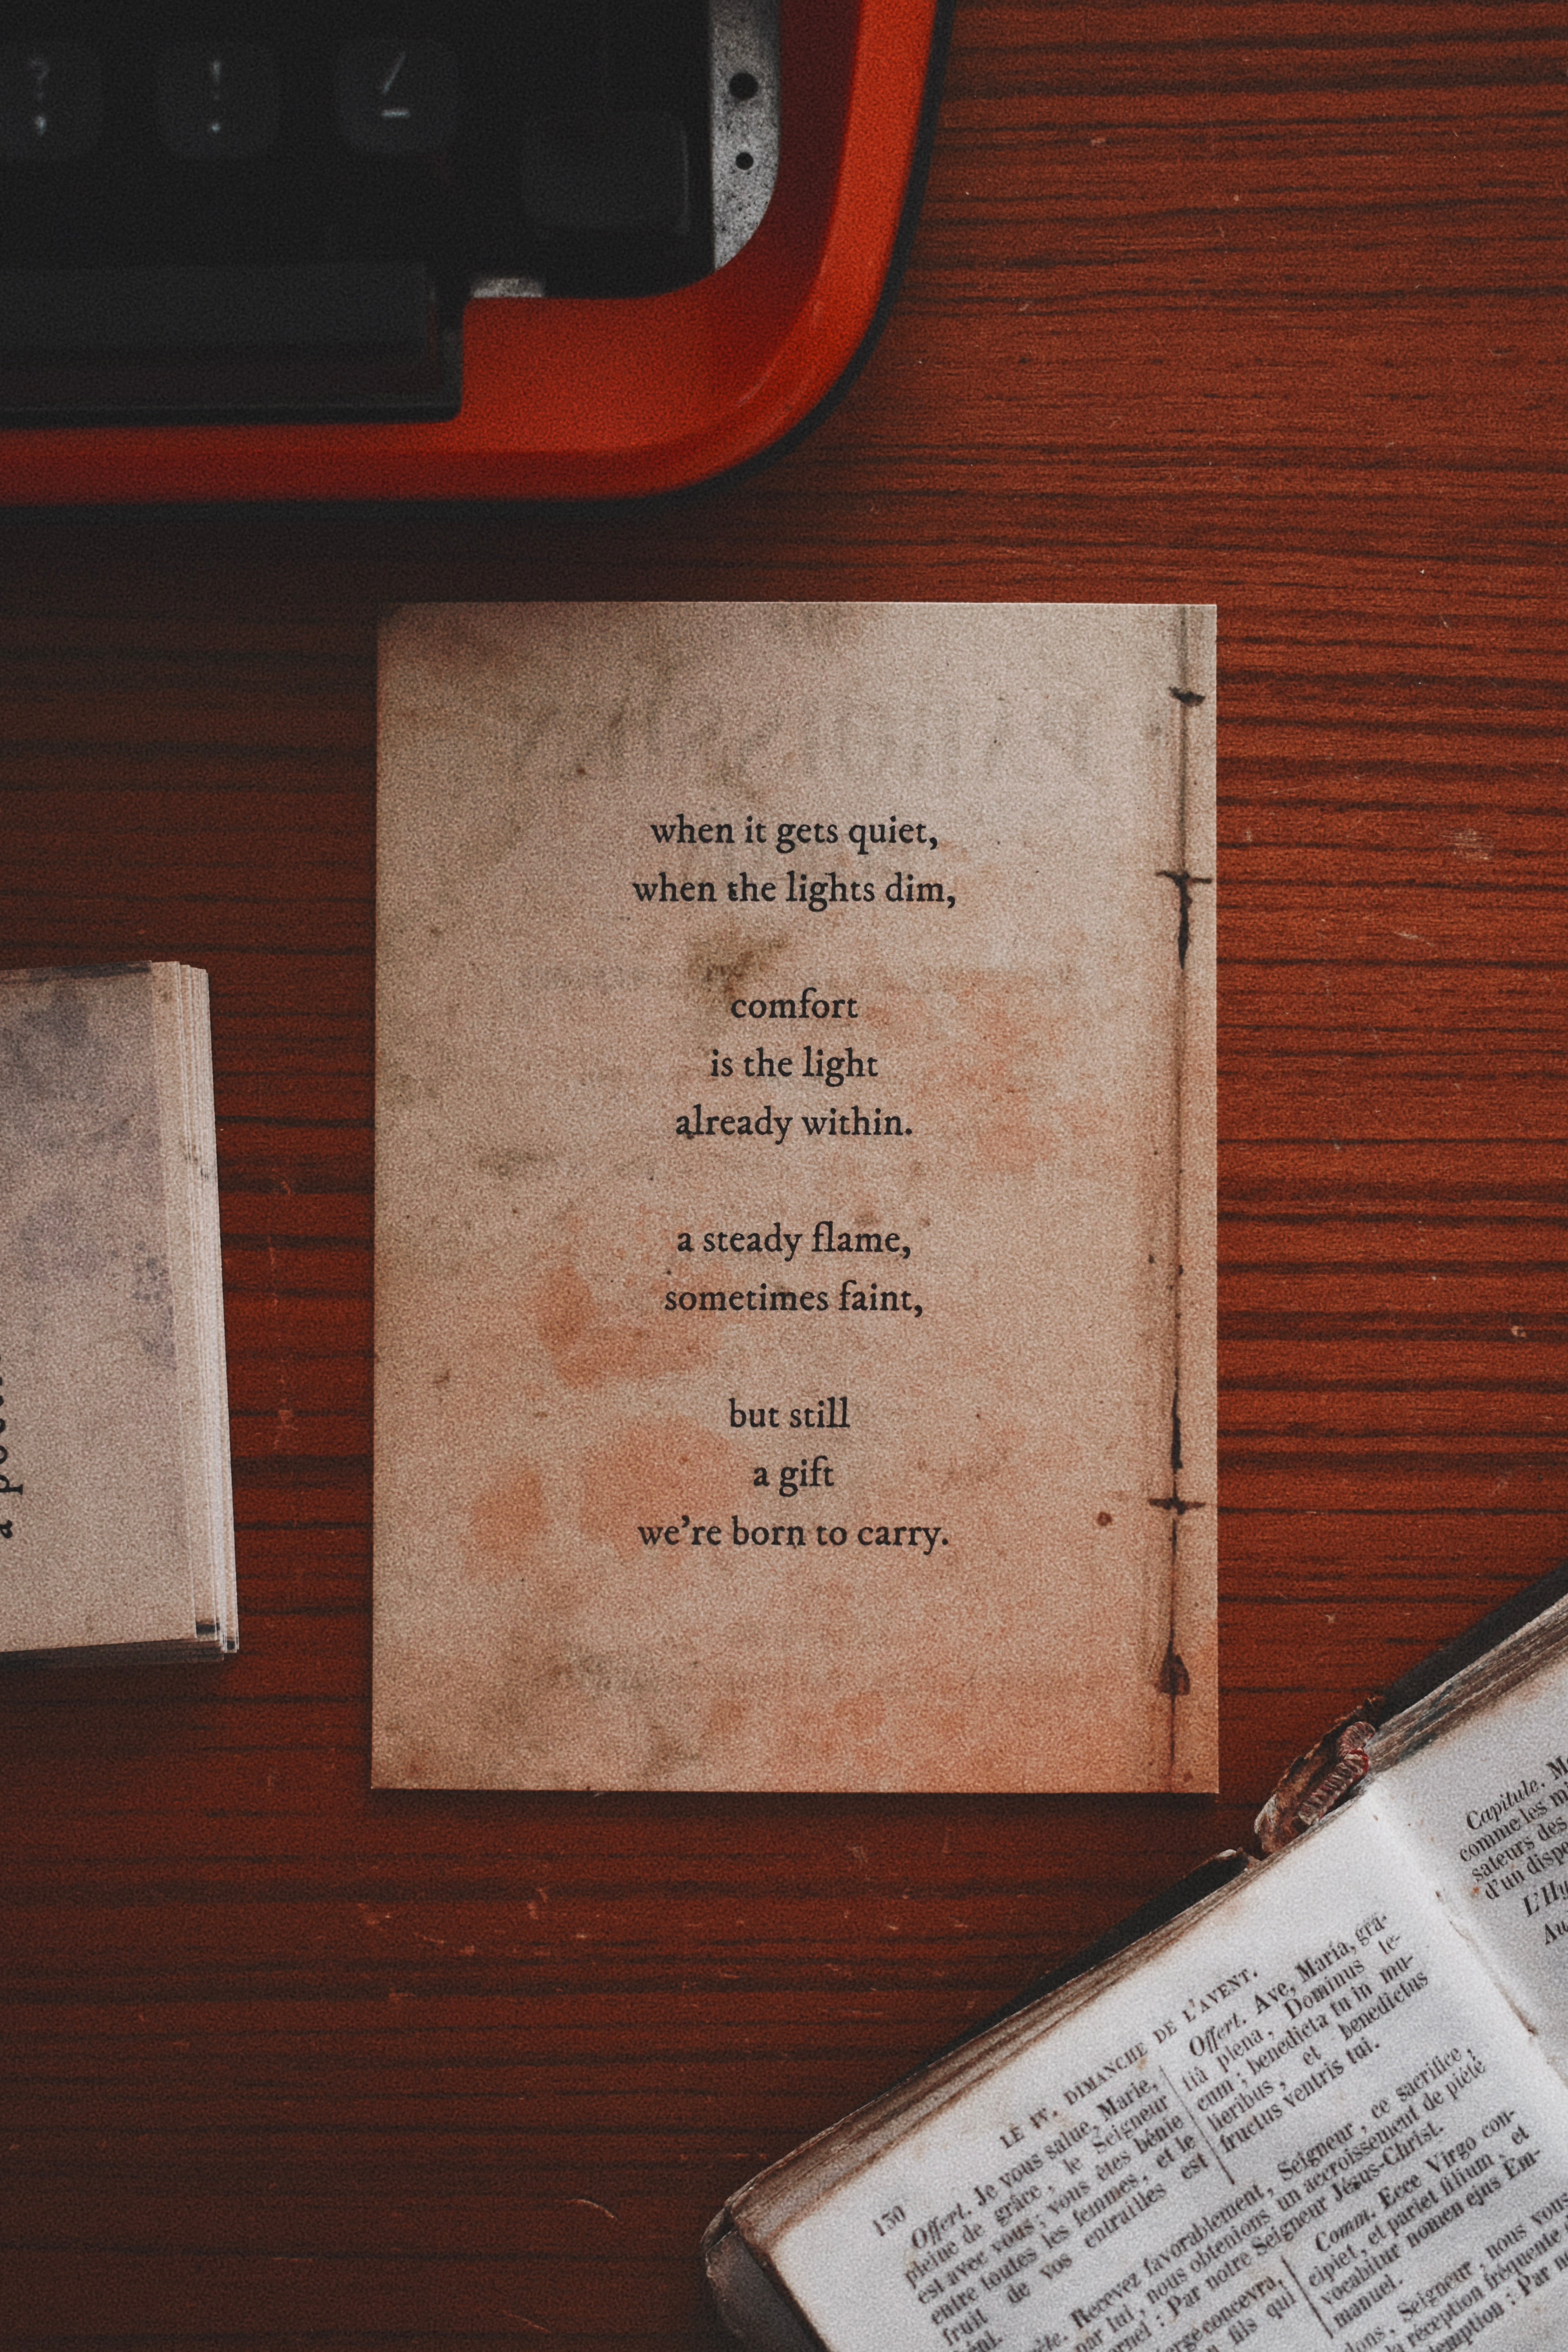 ? ! /
when it gets quiet,
when the lights dim,
comfort
is the light
already within.
a steady flame,
sometimes faint,
but still
a gift
we're born to carry.
LE IV. DIMANCHE DE L'AVENT.
130
Offert. Je vous salue, Marie,
pleine de grâce, le Seigneur
est avec vous; vous êtes bénie
entre toutes les femmes, et le
fruit de vos entrailles est
béni.
Offert. Ave, Maria, grâ-
tiâ plena, Dominus te-
cum; benedicta tu in mu-
lieribus, et benedictus
fructus ventris tui.
Recevez favorablement, Seigneur, ce sacrifice,
par lui, nous obtenions un accroissement de piété
: Par notre Seigneur Jésus-Christ.
concevra,
fils qui
Comm. Ecce Virgo con-
cipiet, et pariet filium, et
vocabitur nomen ejus Em-
manuel.
Seigneur, nous vous
réception fréquente
: Par
Capitule.
comme les
sateurs des
d'un